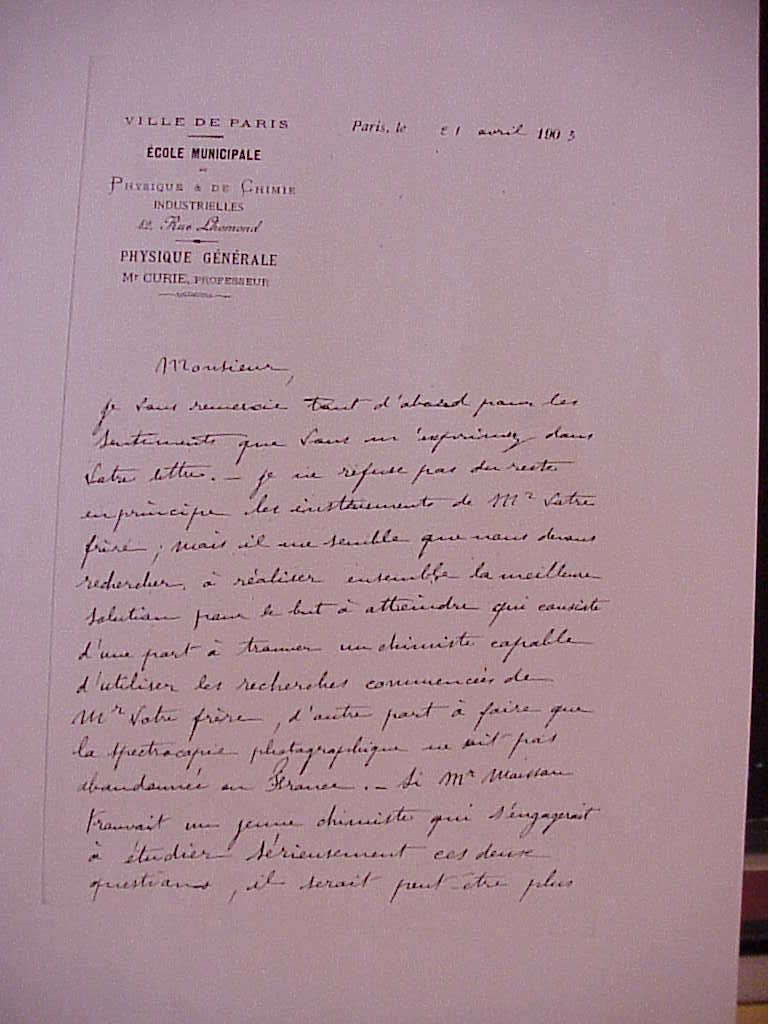 VILLE DE PARIS
ÉCOLE MUNICIPALE
DE
PHYSIQUE & DE CHIMIE
INDUSTRIELLES
42, Rue Lhomond
PHYSIQUE GÉNÉRALE
Mr CURIE, PROFESSEUR
Paris, le 21 avril 1903
Monsieur,
je vous remercie tout d'abord pour les
sentiments que vous m'exprimez dans
votre lettre. — je ne refuse pas du reste
en principe les instruments de Mr votre
frère ; mais il me semble que nous devons
rechercher à réaliser ensemble la meilleure
solution pour le but à atteindre qui consiste
d'une part à trouver un chimiste capable
d'utiliser les recherches commencées de
Mr votre frère, d'autre part à faire que
la spectrocopie photographique ne soit pas
abandonnée en France. — Si Mr Moissan
trouvait un jeune chimiste qui s'engagerait
à étudier sérieusement ces deux
questions, il serait peut-être plus